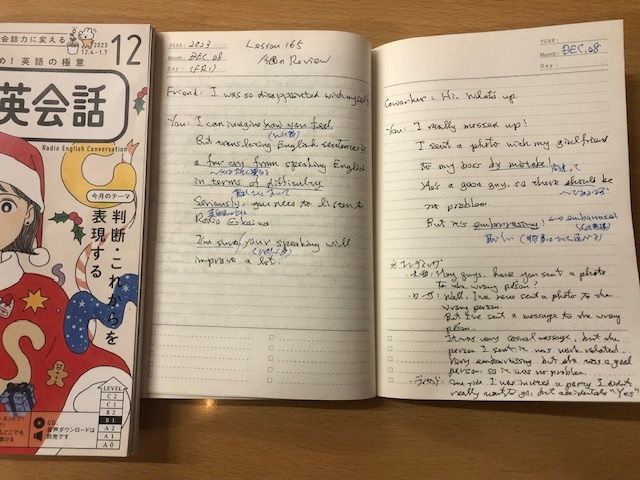 会話力に変える
2023
12.4-1.7
12
め! 英語の極意
英会話
Radio English Conversation
今月のテーマ
判断・これからを
表現する
LEVEL
C2
C1
B2
B1
A2
A1
A0
CD
音声ダウンロードは
別売です
YEAR: 2023
Month: DEC.08
Day: (FRI)
Lesson 165
Review
Friend: I was so disappointed with myself
You: I can imagine how you feel.
But translating English sentences is
a far cry from speaking English
in terms of difficulty
Seriously, you need to listen to
Radio Eikaiwa
I'm sure your speaking will
improve a lot.
YEAR:
Month: DEC.08
Day:
Coworker: Hi. What's up.
You: I really messed up!
I sent a photo with my girlfriend
to my boss by mistake!
He's a good guy, so there should be
no problem
But it's embarrassing! ↔ embarrassed
Hey guys. have you sent a photo
to the wrong person?
Well, I've never sent a photo to the
wrong person.
But I've sent a message to the wrong
person.
It was very casual message, but the
person I sent it was work related.
Very embarrassing but she was a good
person. so it was no problem.
I was invited a party I didn't
really want to go, but "Yes"